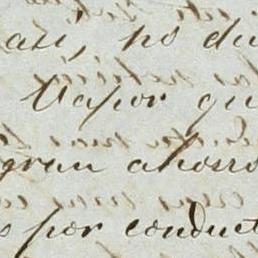 asi, no di
Vapor qu
gran ahorro
s por conduct